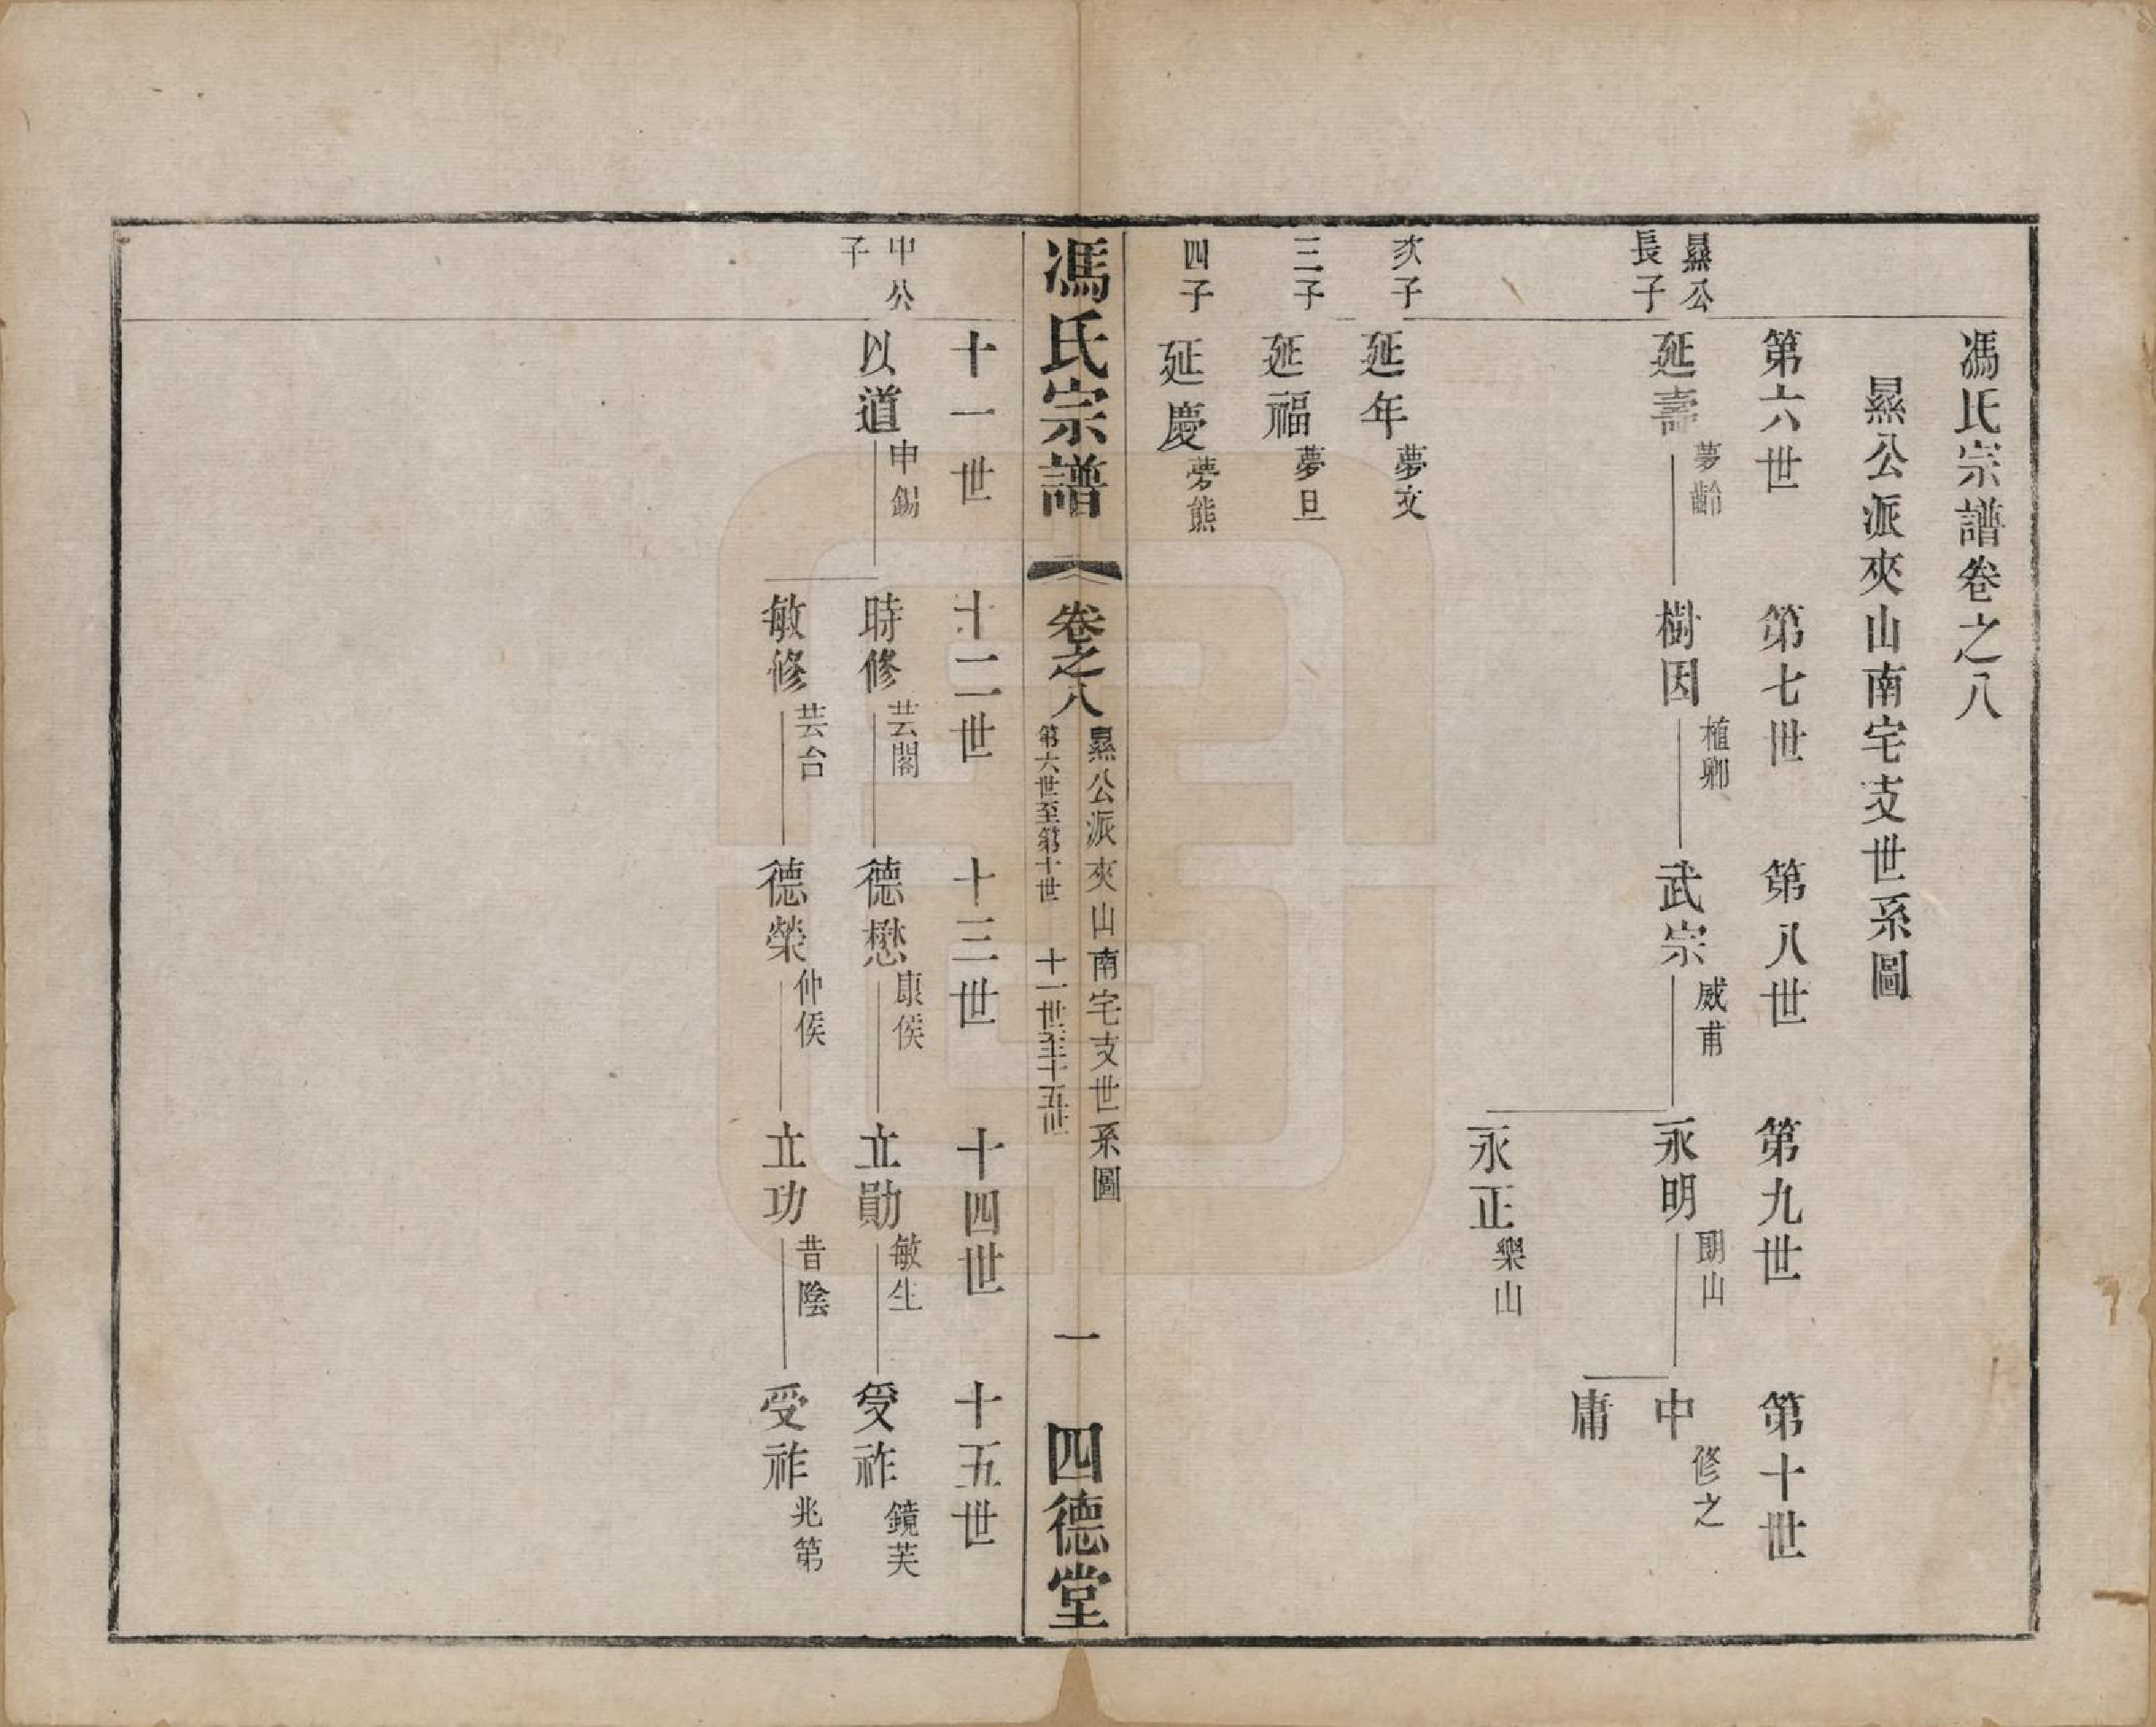 馮氏宗譜卷之八
㬎公派夾山南宅支世系圖
第六世
第七世
第八世
第九世
第十世
㬎公
長子
延壽
夢齡
樹因
植卿
武宗
威甫
永明
朗山
中
修之
庸
永正
樂山
次子
延年
夢文
三子
延福
夢旦
四子
延慶
夢熊
馮氏宗譜
卷之八
㬎公派夾山南宅支世系圖
第六世至第十世
十一世至十五世
一
四德堂
十一世
十二世
十三世
十四世
十五世
中公
子
以道
申錫
時修
芸閣
德懋
康侯
立勛
敏生
受祚
鏡芙
敏修
芸台
德榮
仲侯
立功
昔陰
受祚
兆第